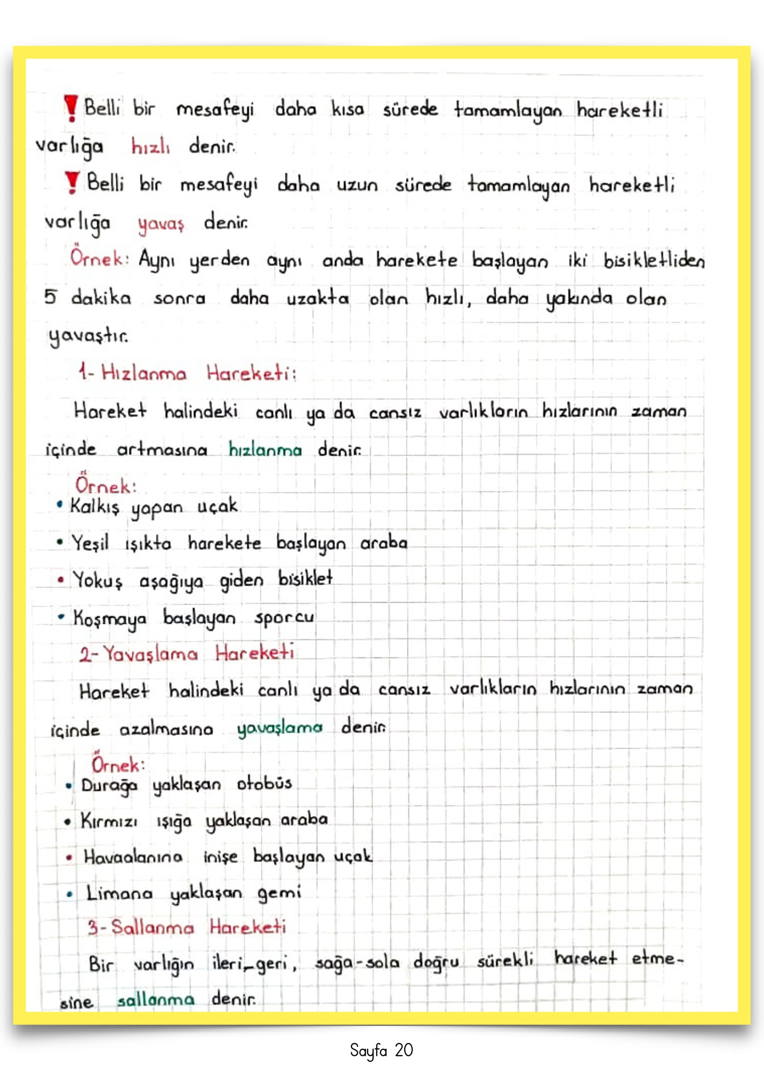 Belli bir mesafeyi daha kısa sürede tamamlayan hareketli
varlığa hızlı denir.
Belli bir mesafeyi daha uzun sürede tamamlayan hareketli
varlığa yavaş denir.
Örnek: Aynı yerden aynı anda harekete başlayan iki bisikletliden
5 dakika sonra daha uzakta olan hızlı, daha yakında olan
yavaştır.
1- Hızlanma Hareketi:
Hareket halindeki canlı ya da cansız varlıkların hızlarının zaman
içinde artmasına hızlanma denir.
Örnek:
• Kalkış yapan uçak
• Yeşil ışıkta harekete başlayan araba
• Yokuş aşağıya giden bisiklet
• Koşmaya başlayan sporcu
2- Yavaşlama Hareketi
Hareket halindeki canlı ya da cansız varlıkların hızlarının zaman
içinde azalmasına yavaşlama denir.
Örnek:
• Durağa yaklaşan otobüs
• Kırmızı ışığa yaklaşan araba
• Havaalanına inişe başlayan uçak
• Limana yaklaşan gemi
3- Sallanma Hareketi
Bir varlığın ileri-geri, sağa-sola doğru sürekli hareket etme-
sine sallanma denir.
Sayfa 20